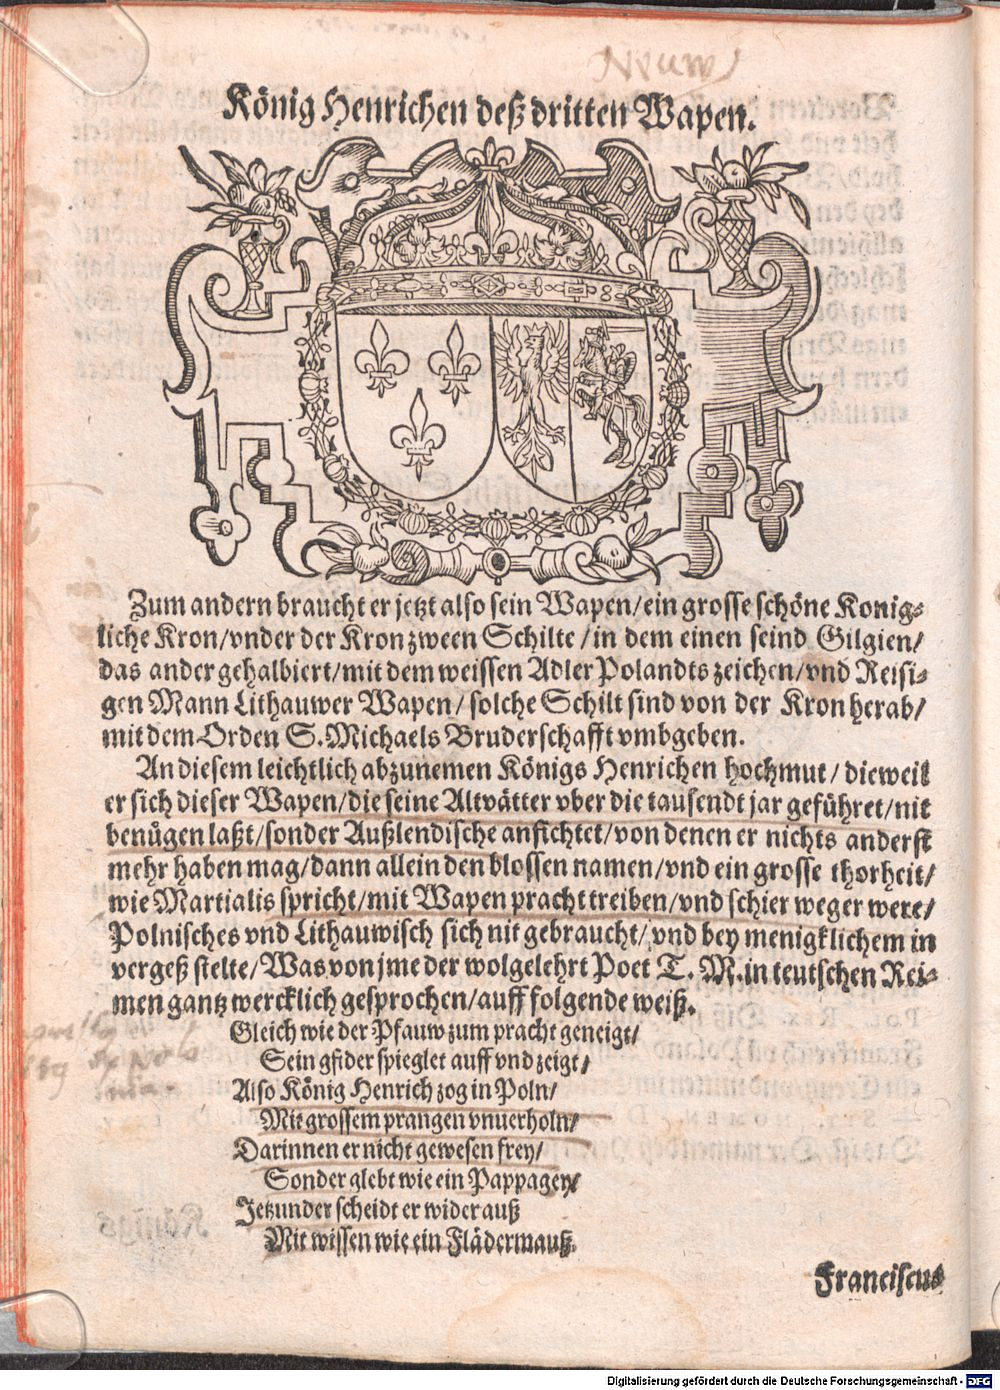 König Henrichen deß dritten Wapen.
Zum andern braucht er jetzt also sein Wapen/ein grosse schöne Konig-
liche Kron/vnder der Kron zween Schilte/in dem einen seind Gilgien/
das ander gehalbiert/mit dem weissen Adler Polandts zeichen/vnd Reisi-
gen Mann Lithauwer Wapen/solche Schilt sind von der Kron herab/
mit dem Orden S. Michaels Bruderschafft vmbgeben.
An diesem leichtlich abzunemen Königs Henrichen hochmut/dieweil
er sich dieser Wapen/die seine Altvätter vber die tausendt jar geführet/nit
benügen laßt/sonder Außlendische anfichtet/von denen er nichts anderst
mehr haben mag/dann allein den blossen namen/vnd ein grosse thorheit/
wie Martialis spricht/mit Wapen pracht treiben/vnd schier weger were/
Polnisches vnd Lithauwisch sich nit gebraucht/vnd bey menigklichem in
vergeß stelte/Was von jme der wolgelehrt Poet T. M. in teutschen Rei-
men gantz wercklich gesprochen/auff folgende weiß.
Gleich wie der Pfauw zum pracht geneigt/
Sein gfider spieglet auff vnd zeigt/
Also König Henrich zog in Poln/
Mit grossem prangen vnuerholn/
Darinnen er nicht gewesen frey/
Sonder glebt wie ein Pappagey/
Jetzunder scheidt er wider auß
Mit wissen wie ein Flädermauß.
Franciscus
Digitalisierung gefördert durch die Deutsche Forschungsgemeinschaft - DFG